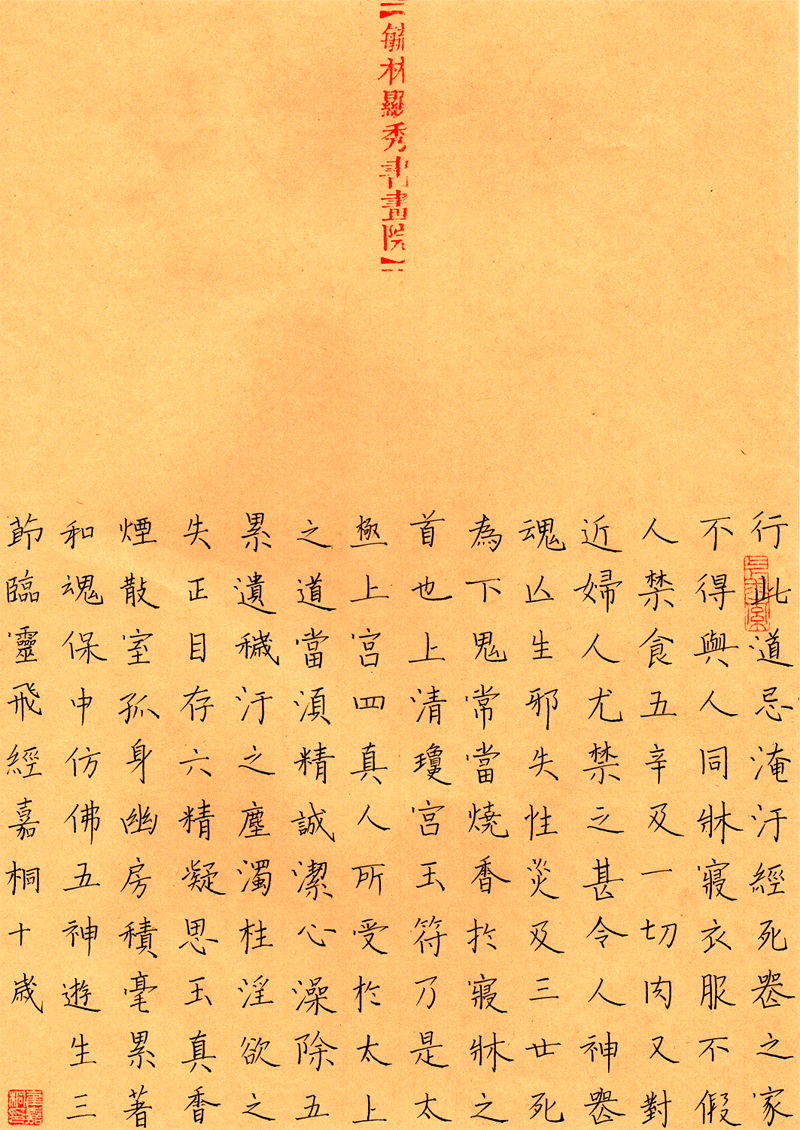 【毓林顯秀書畫院】
行此道忌淹汙經死喪之家
不得與人同牀寢衣服不假
人禁食五辛及一切肉又對
近婦人尤禁之甚令人神喪
魂亡生邪失性災及三世死
為下鬼常當燒香於寢牀之
首也上清瓊宮玉符乃是太
極上宮四真人所受於太上
之道當須精誠潔心澡除五
累遺穢汙之塵濁杜淫欲之
失正目存六精凝思玉真香
煙散室孤身幽房積毫累著
和魂保中仿佛五神遊生三
節臨靈飛經嘉桐十歲